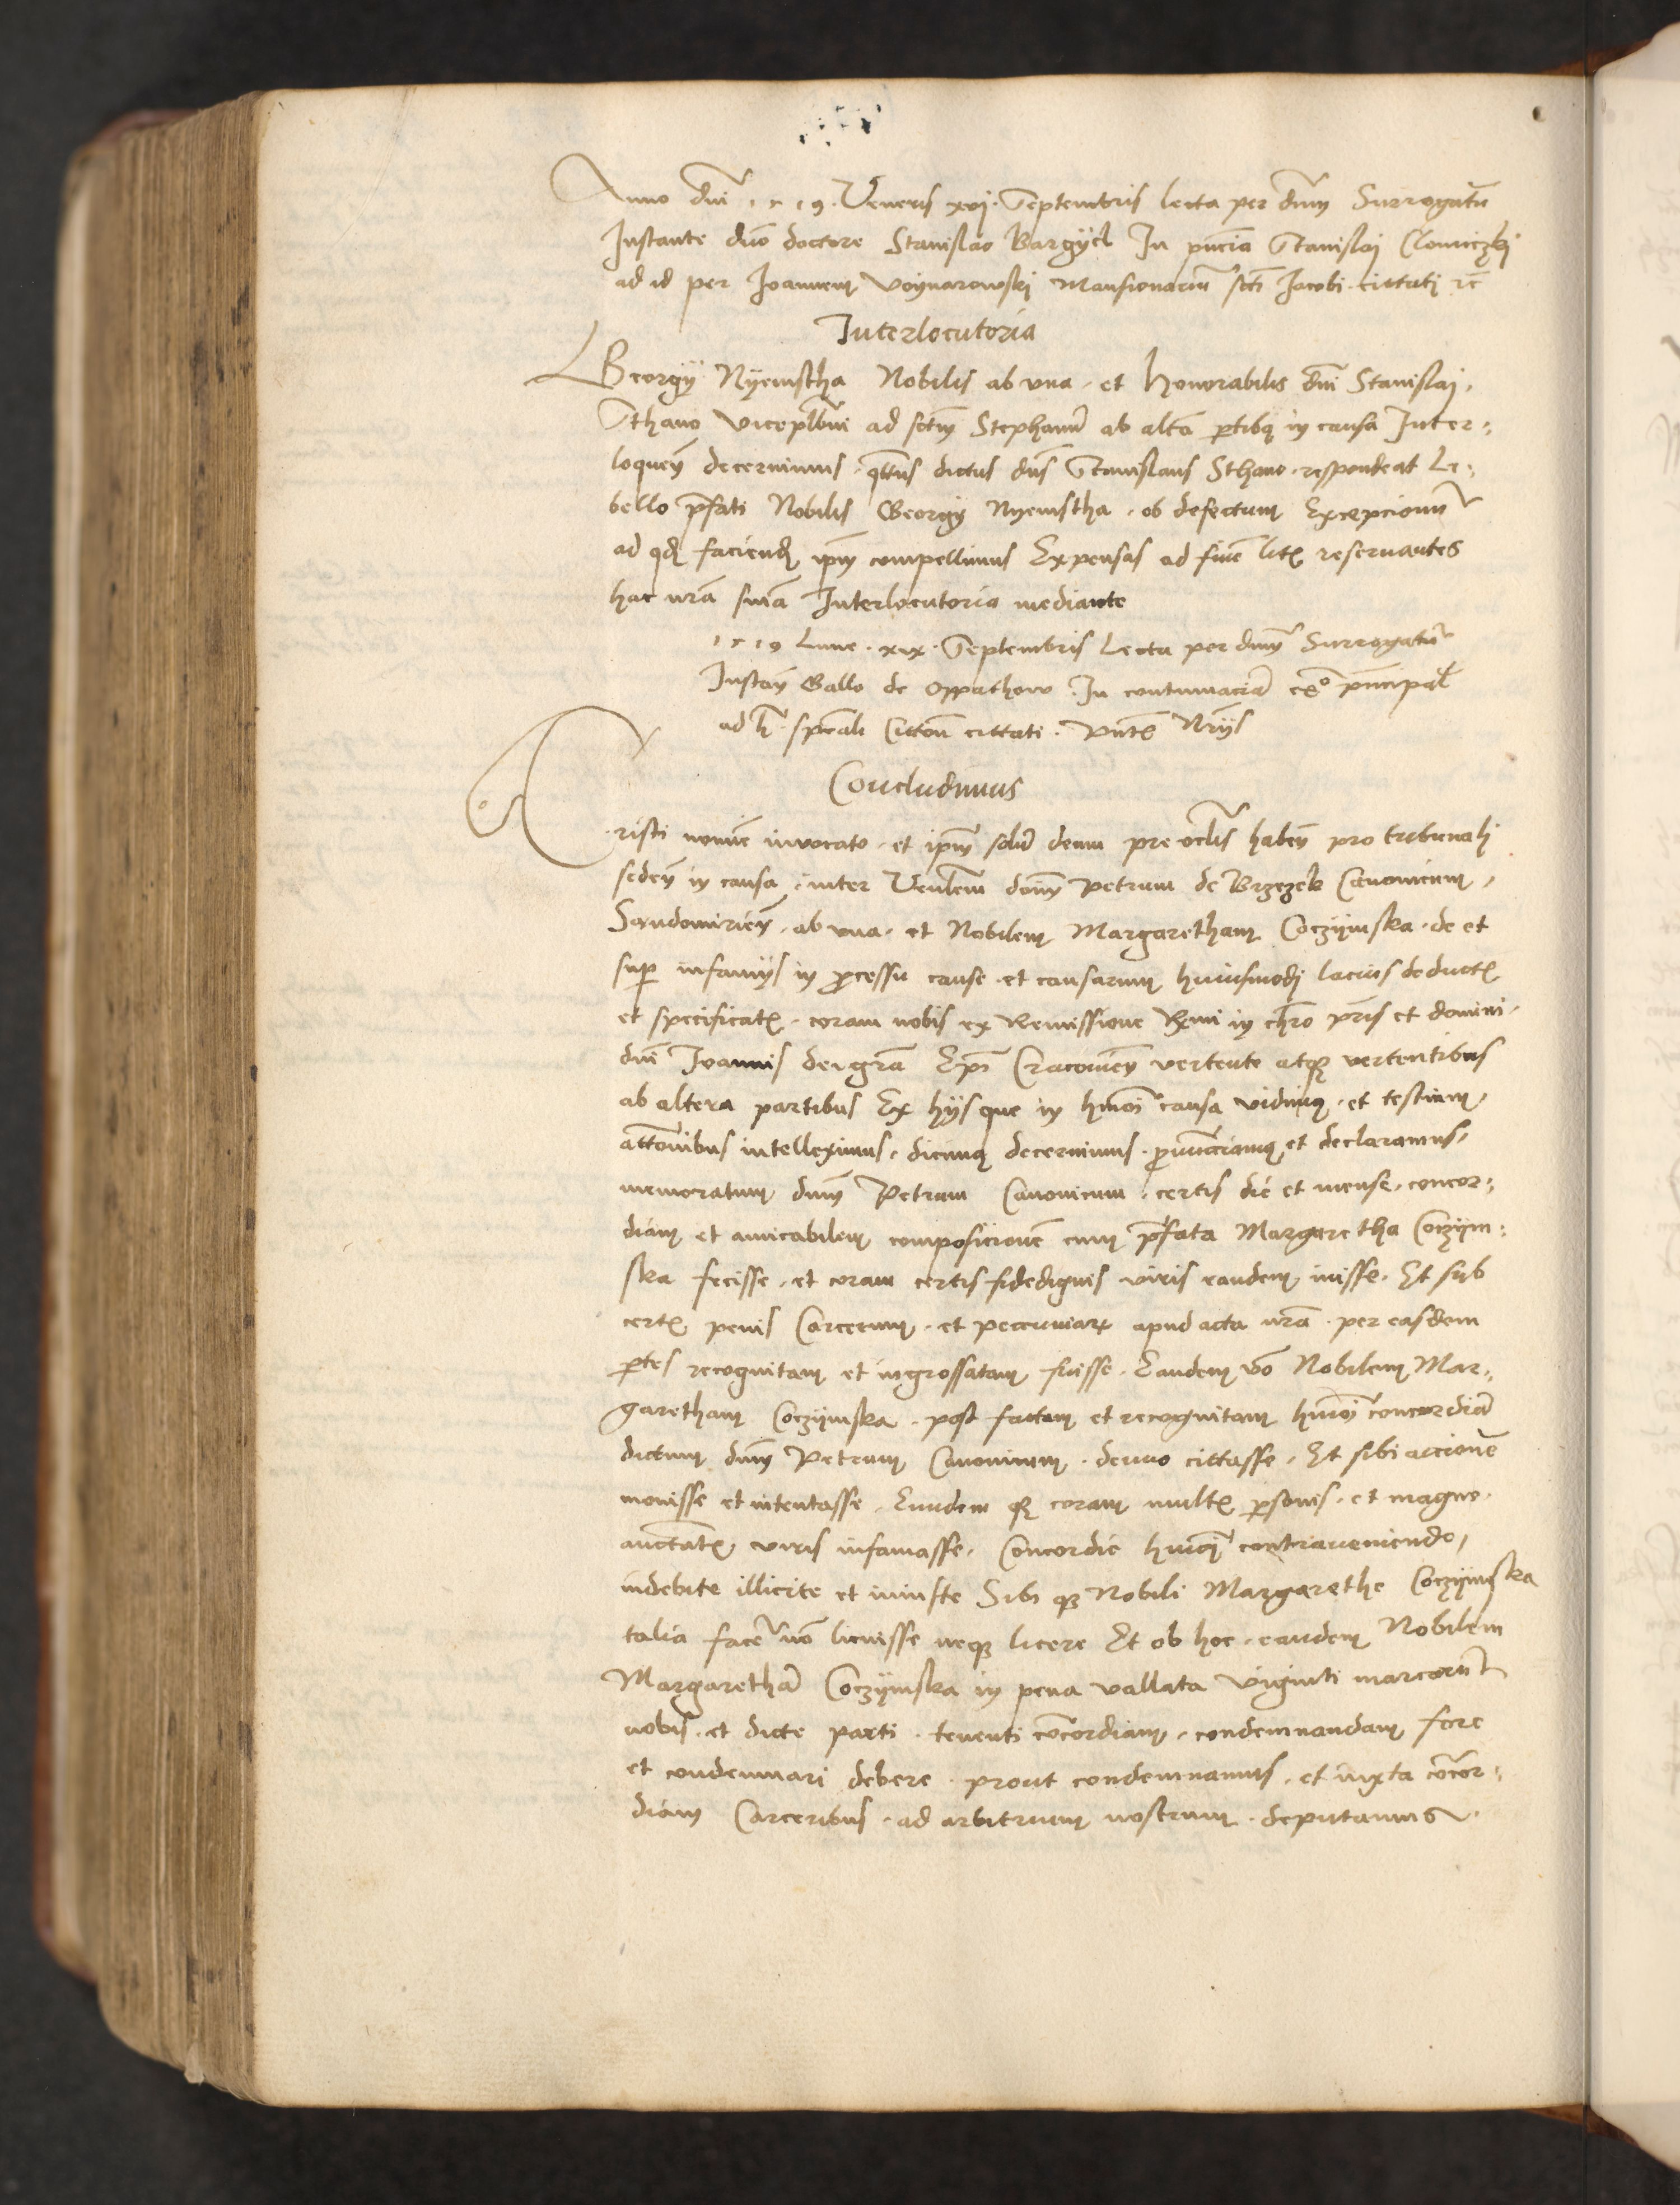 Anno dni 1519 Veneris xvj Septembris lecta per dnm Surrogatu
Instante dno doctore Stanislao Bargyel In pncia Stanislai
ad id per Joannem Voynarowski Mansionariu scti Jacobi cittati rc
Interlocutoria
Georgy Nyemstha Nobilis ab vna et Honorabilis dni Stanislai
Sthano vicepleb ad sctm Stephanu ab alta ptibus in causa Inter=
loquen decernimus qtus dictus dns Stanislaus Sthano respondeat Li=
bello pfati Nobilis Georgy Nyemstha ob defectum Excepcionu
ad qd faciend ipm compellimus Expensas ad fine litis reseruantes
hac nra snia Interlocutoria mediante
1519 Lune xix Septembris Lecta per dnm Surrogatu
Instan Gallo de Oppathow In contumacia principal
ad h speciali Citton cittati
Concludimus
Cristi nomine inuocato et ipm solu deum pre oclis haben pro tribunali
seden in causa inter Venlem dnm Petrum de Brzezek Canonicum
Sandomirien ab vna et Nobilem Margaretham Coczymska de et
sup infamys in pcessu cause et causarum huiusmodi lacius deduct
et specificat coram nobis ex Remissione Rmi in chro pris et domini
dni Joannis dei gra Epi Cracouien vertente atque vertentibus
ab altera partibus Ex hys que in hmoi causa vidimus et testium
attonibus intelleximus dicimus decernimus pnunciamus et declaramus
memoratum dnm Petrum Canonicum certis die et mense concor=
diam et amicabilem composicione cum pfata Margaretha Coczym=
ska fecisse et coram certis fidedignis viris eandem inisse Et sub
certis penis Carcerum et pecuniar apud acta nra per easdem
ptes recognitam et ingrossatam fuisse Eandem vo Nobilem Mar=
garetham Coczymska post factam et recognitam hmoi concordia
dictum dnm Petrum Canonicum denuo cittasse Et sibi accione
mouisse et intentasse Eundem que coram multis psonis et magne
auctatis viris infamasse Concordie hmoi contraueniendo
indebite illicite et iniuste Sibi que Nobili Margarethe Coczymska
talia facere no licuisse neque licere Et ob hoc eandem Nobilem
Margaretha Coczymska in pena vallata viginti marcaru
nobis et dicte parti tenenti concordiam condemnandam fore
et condemnari debere prout condemnamus et iuxta concor=
diam Carceribus ad arbitrium nostrum deputamus